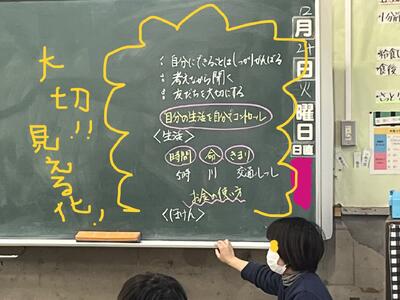 大切!!
見える化!
: 自分にできることはしっかりがんばる
: 考えながら聞く
: 友だちを大切にする
自分の生活を自分でコントロール
<生活>
時間 命 きまり
5時 川 交通しっし
お金の使い方
<ほけん>
12月
24日
火曜日
日直